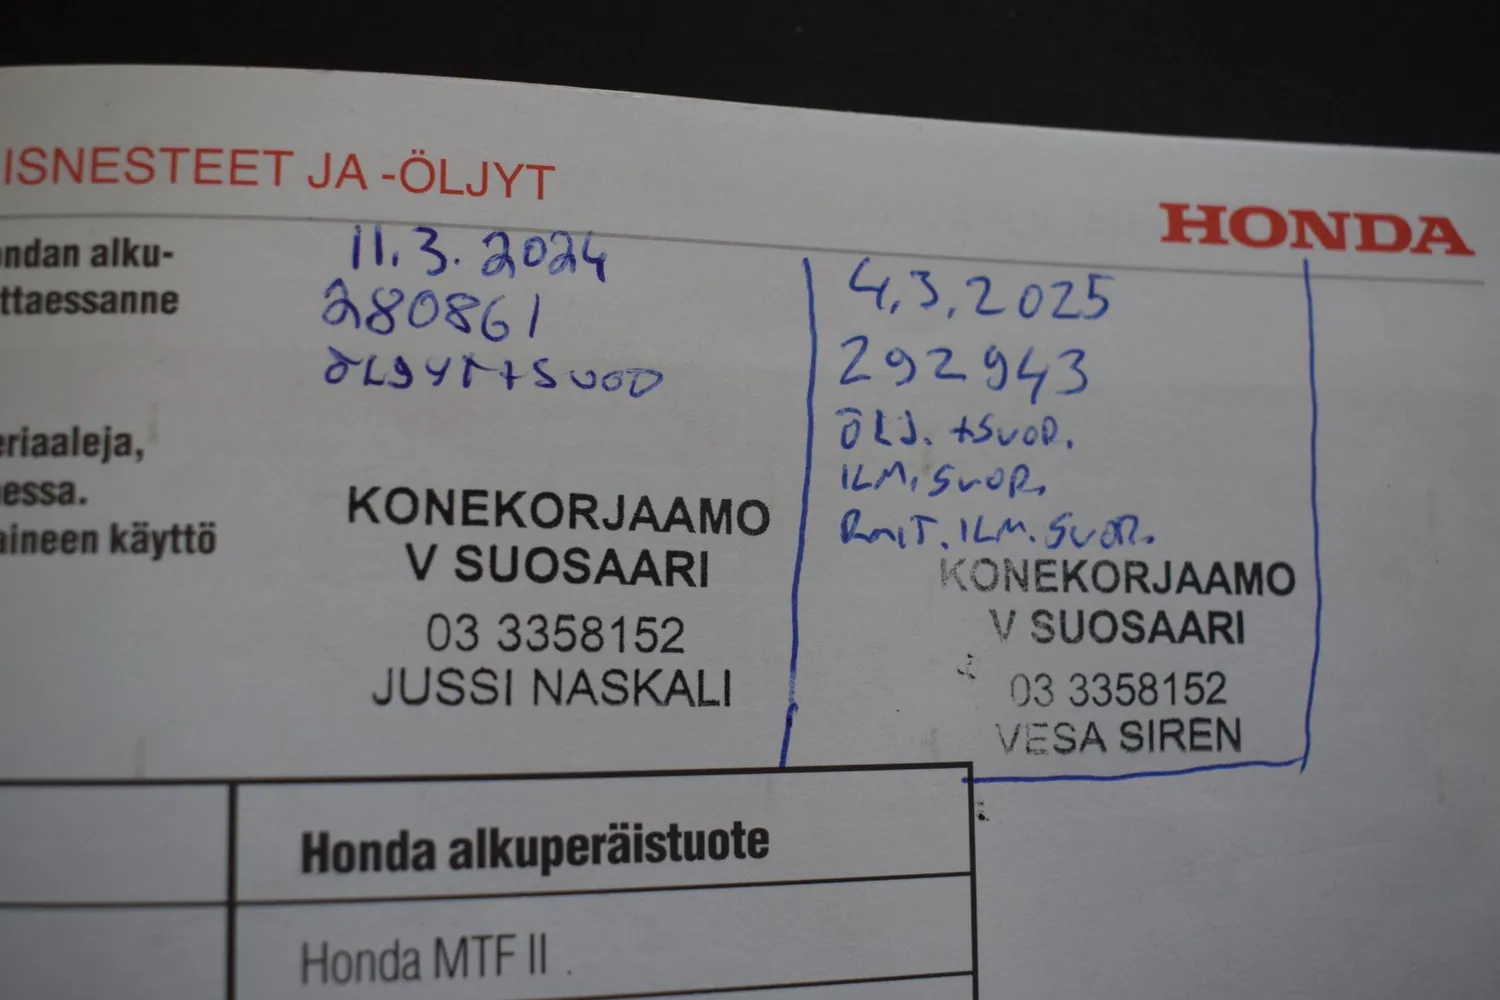 ISNESTEET JA -ÖLJYT
HONDA
ondan alku-
ttaessanne
eriaaleja,
essa.
aineen käyttö
11.3.2024
280861
ÖLJYT+SUOD
KONEKORJAAMO
V SUOSAARI
03 3358152
JUSSI NASKALI
4.3.2025
292943
ÖLJ. +SUOD.
ILM.SUOD.
RAIT.ILM.SUOD.
KONEKORJAAMO
V SUOSAARI
03 3358152
VESA SIREN
Honda alkuperäistuote
Honda MTF II